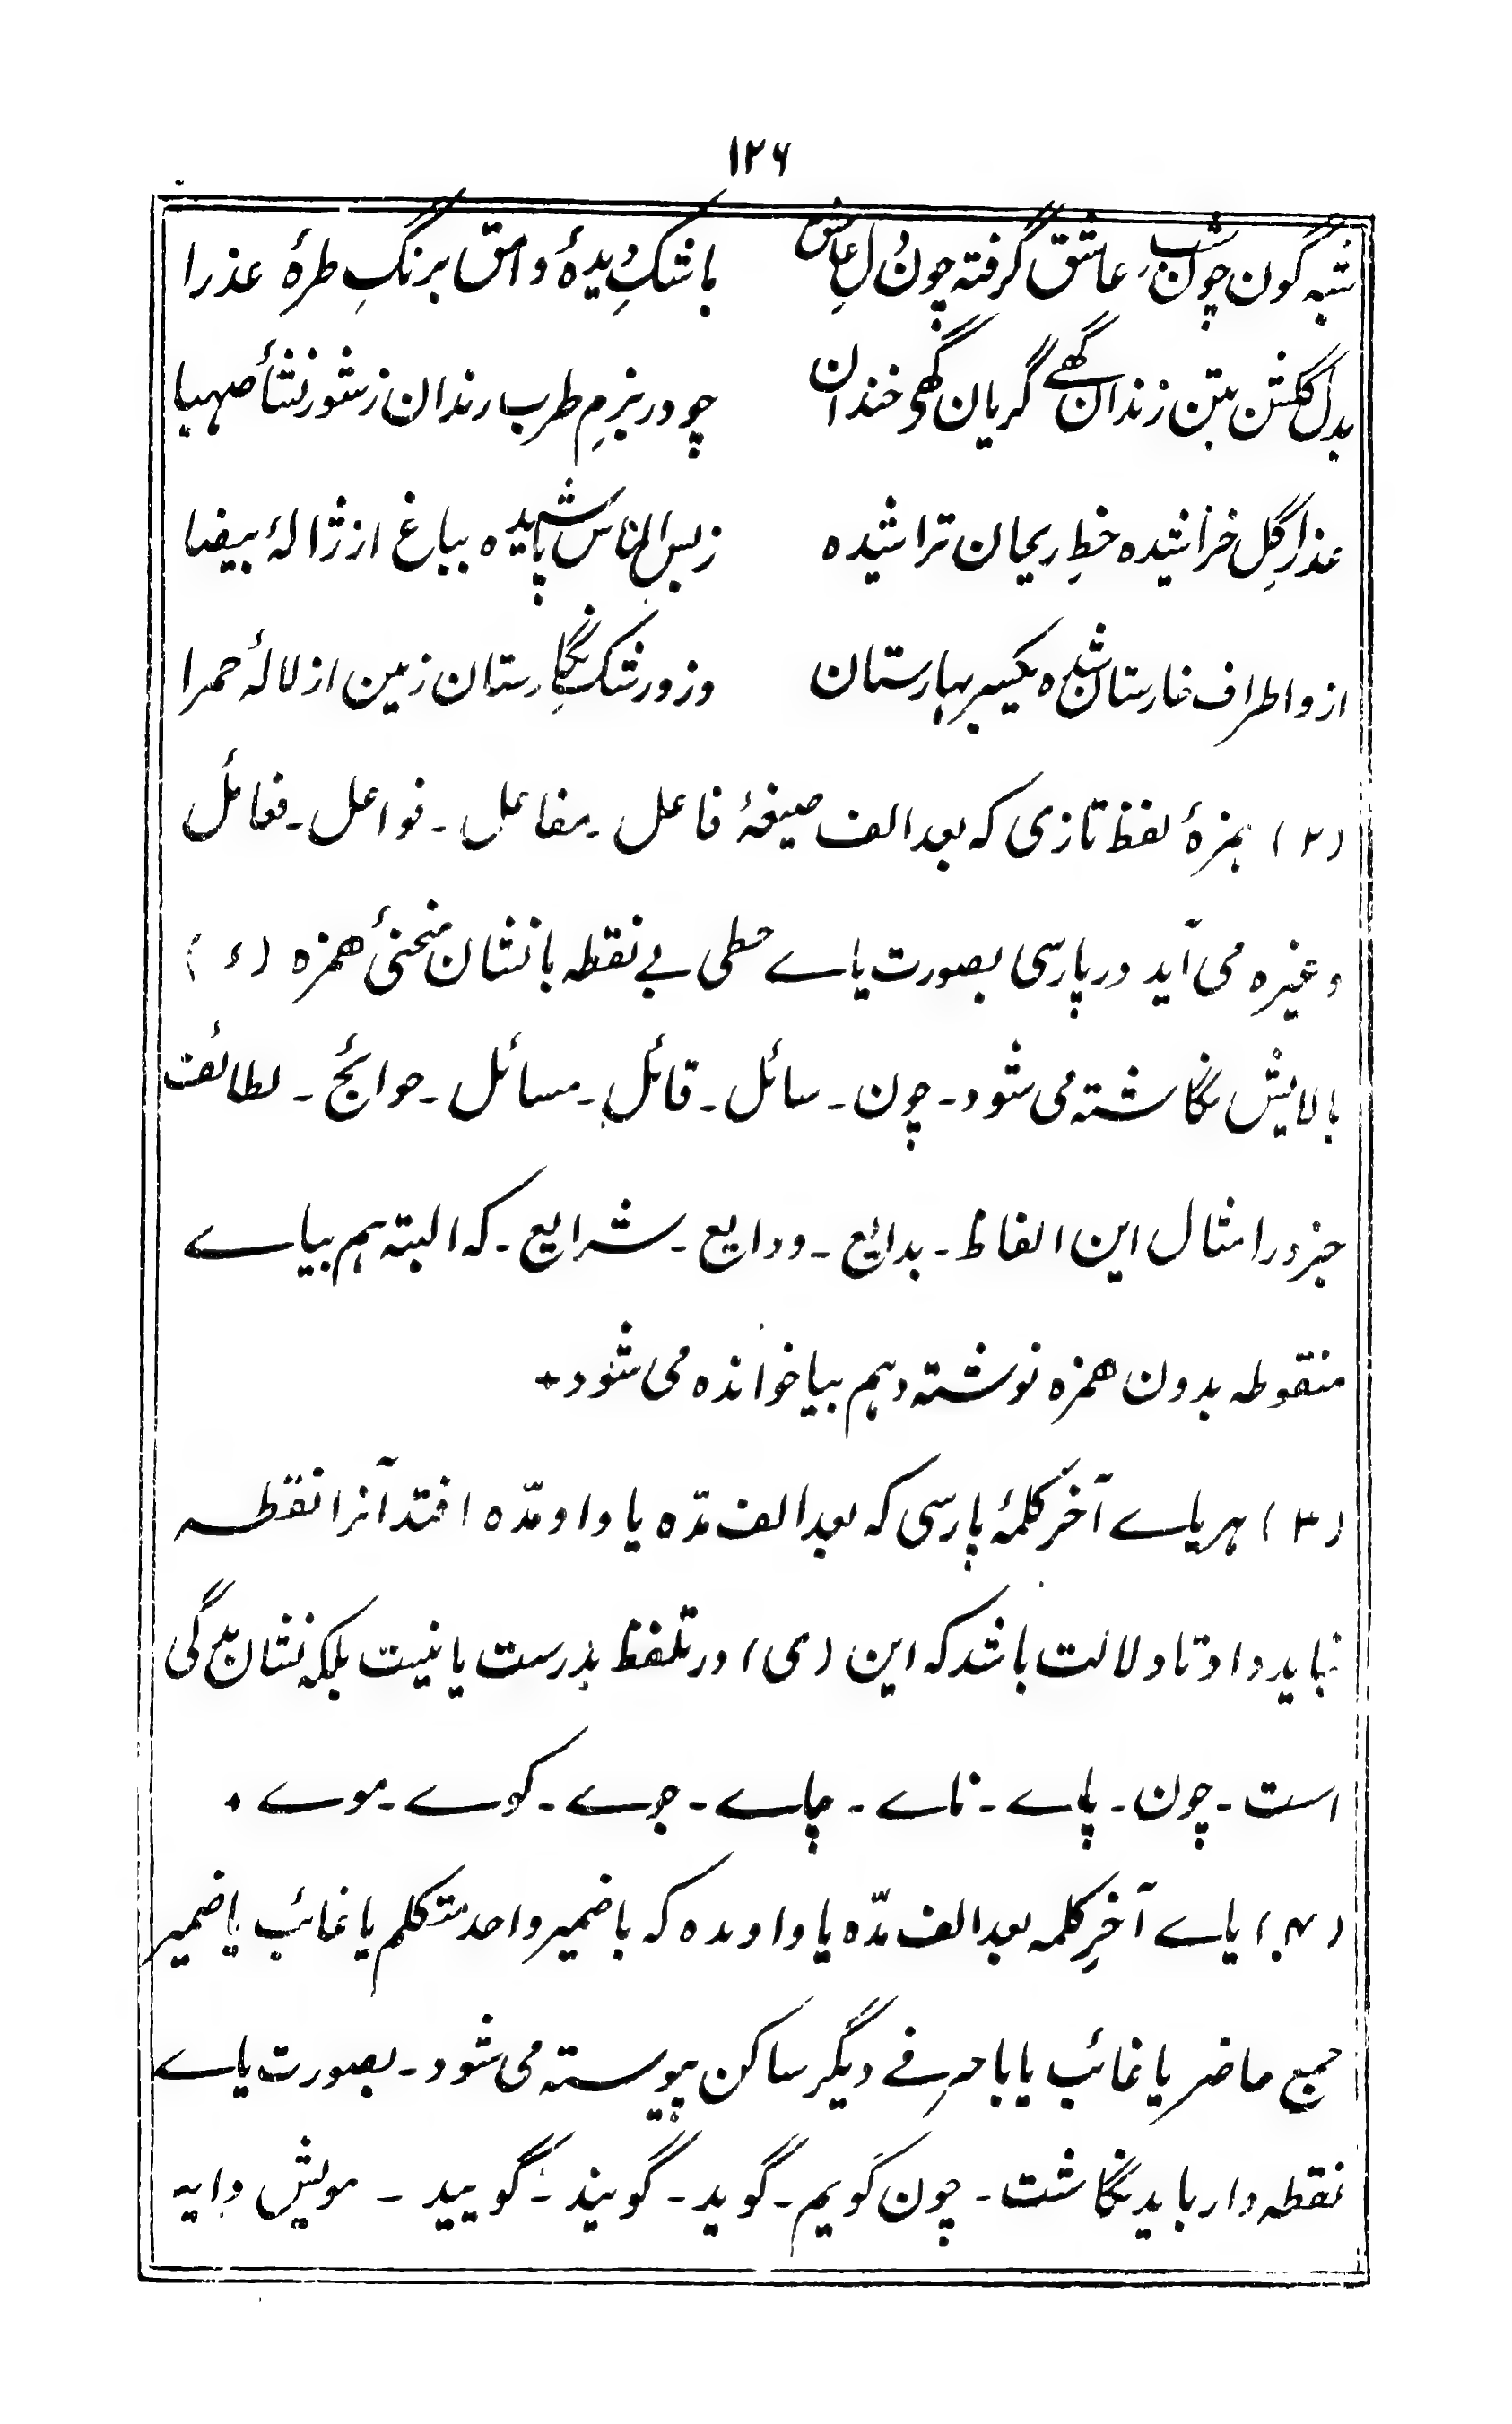 ۱۲۶
شبه گون چون شب عاشق گرفته چون دلِ عاشق باشکِ دیدهٔ وامق برنگِ طرهٔ عذرا
بدل گلشن بتن زندان گهے گریان گهی خندان چو در بزمِ طرب رندان ز شور نشأ صهبا
عذارِ گل خراشیده خطِ ریحان تراشیده زبس الماس پاشیده بباغ از ژالهٔ بیضا
ازو اطراف خارستان شده یکسر بهارستان وزو رشک نگارستان زمین از لالهٔ حمرا
(۲) همزهٔ لفظ تازی که بعد الف صیغهٔ فاعل ـ مفاعل ـ فواعل ـ فعائل
وغیره می آید در پارسی بصورت یاے حطی بے نقطه با نشان منحنیٔ همزه (ء)
بالایش نگاشته می شود ـ چون ـ سائل ـ قائل ـ مسائل ـ حوائج ـ لطائف
جز در امثال این الفاظ ـ بدایع ـ ودایع ـ شرایع ـ که البته هم بیاے
منقوطه بدون همزه نوشته و هم بیا خوانده می شود +
(۳) هر یاے آخر کلمهٔ پارسی که بعد الف مدّه یا واو مدّه افتد آنرا نقطه
نباید داد تا دلالت باشد که این (ی) در تلفظ بدرست یا نیست بلکه نشان
است ـ چون ـ پاے ـ ناے ـ چاے ـ جوے ـ کوے ـ موے +
(۴) یاے آخرِ کلمه بعد الف مدّه یا واو مده که با ضمیر واحد متکلم یا غائب یا ضمیر
جمع حاضر یا غائب یا با حرفے دیگر ساکن پیوسته می شود ـ بصورت یاے
نقطه دار باید نگاشت ـ چون گویم ـ گوید ـ گویند ـ گویید ـ مویش وا